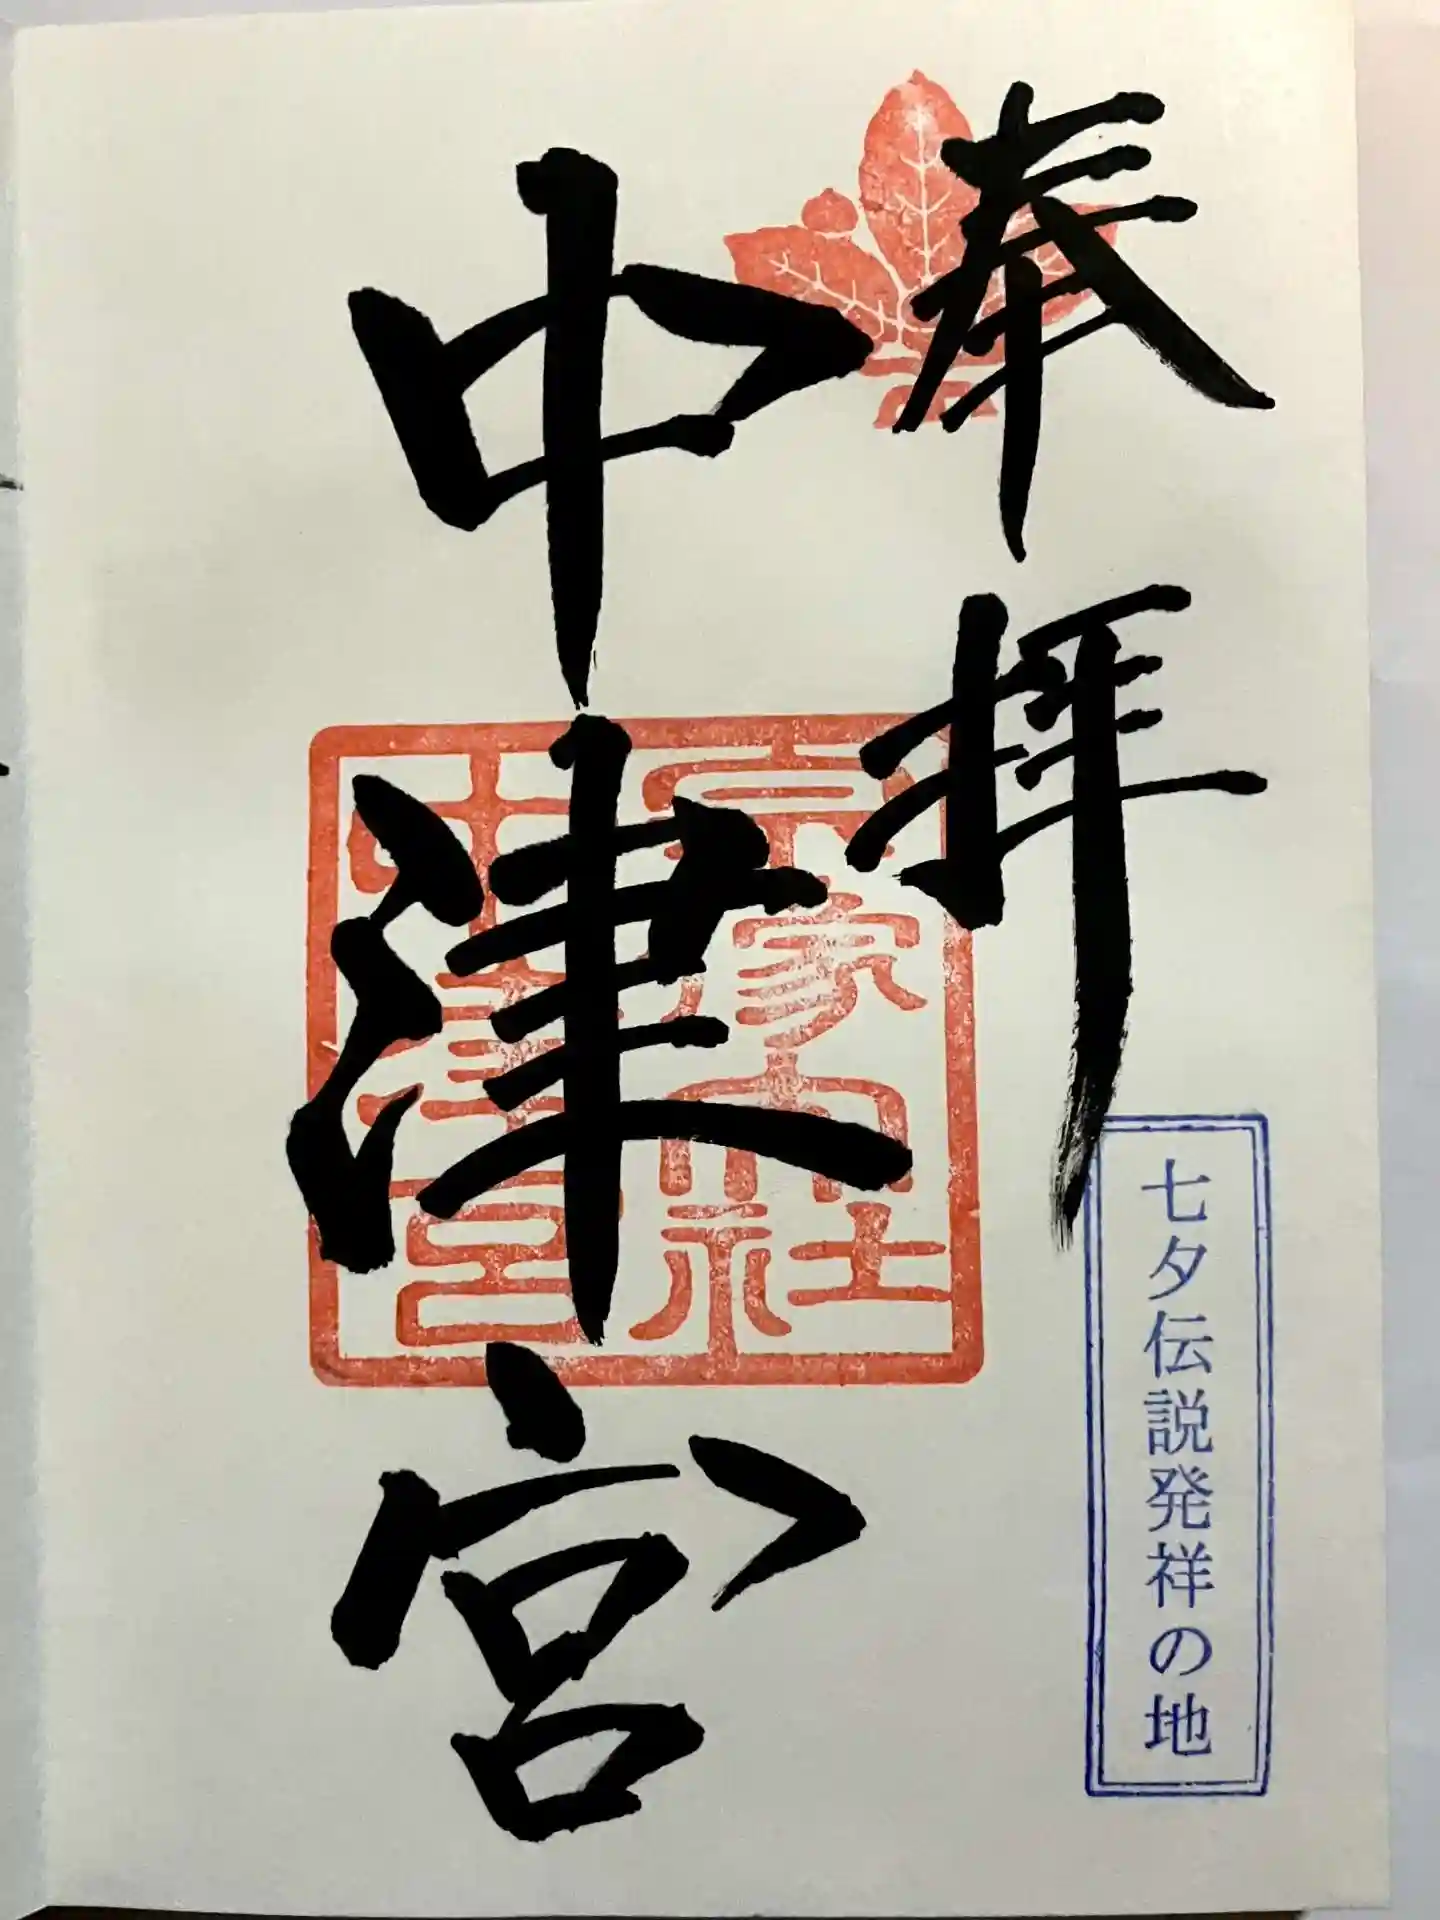 奉拝
七夕伝説発祥の地
中津宮
宗像大社
中津宮